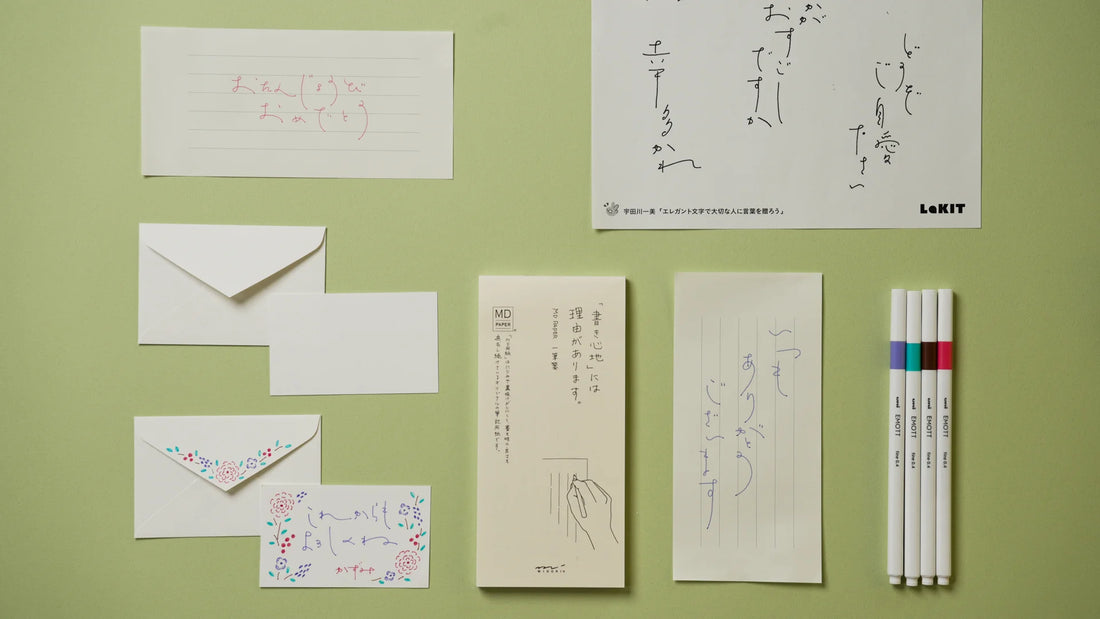 おたんじょうび
おめでとう
どうぞ
ご自愛
ださい
おすごし
ですか
幸多かれ
宇田川一美「エレガント文字で大切な人に言葉を贈ろう」
LaKIT
MD
PAPER
「書き心地」には
理由があります。
MD PAPER 一筆箋
MIDORI
いつも
ありがとう
ございます
これからも
よろしくね
かずみ
uni EMOTT fine 0.4
uni EMOTT fine 0.4
uni EMOTT fine 0.4
uni EMOTT fine 0.4